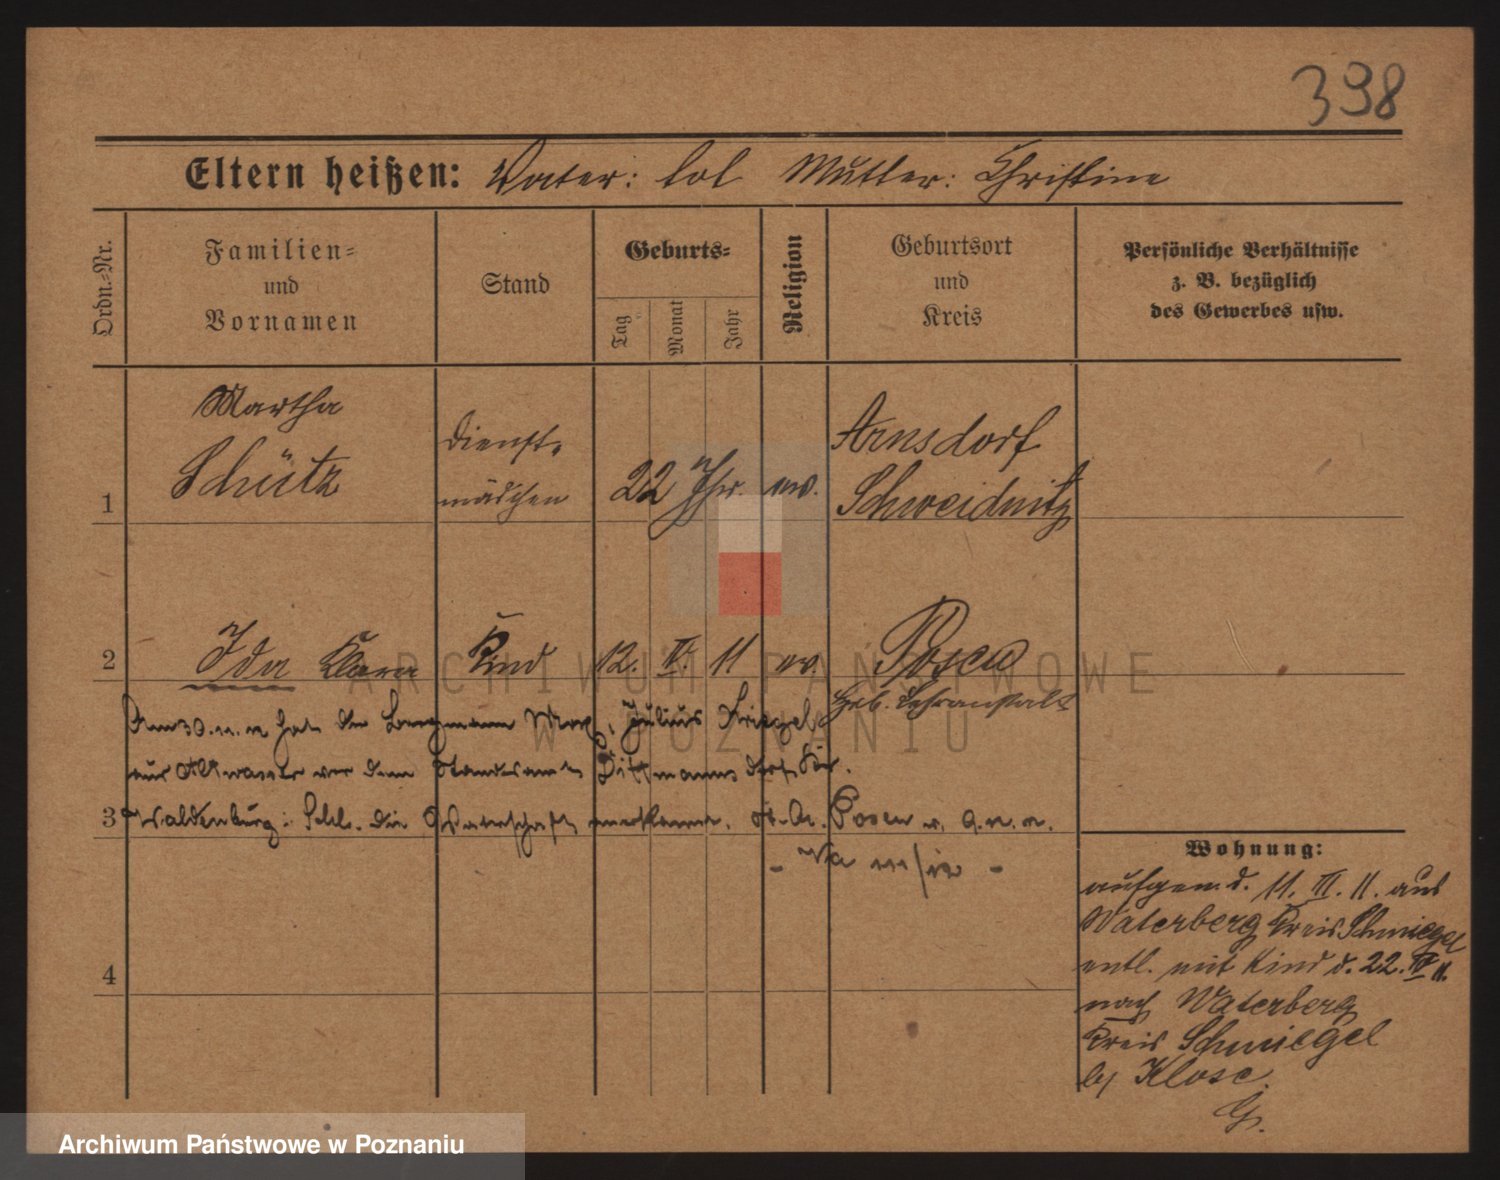 398
Eltern heißen: Vater: tot Mutter: Christine
Ordn.-Nr.
Familien-
und
Vornamen
Stand
Geburts-
Tag
Monat
Jahr
Religion
Geburtsort
und
Kreis
Persönliche Verhältnisse
z. B. bezüglich
des Gewerbes usw.
1
Martha
Schütz
Dienst-
mädchen
22 Jhr.
ev.
Arnsdorf
Schweidnitz
2
Ida Klara
Kind
12. IV. 11
ev.
Posen
Heb. Lehranstalt
Am 30. 11. 12 hat der Bergmann Max, Julius Kriegel
aus Altwasser vor dem Standesamte Dittmannsdorf Kr.
3
Waldenburg i. Schl. die Vaterschaft anerkannt. St. A. Posen v. 9. 12. 12.
4
Wohnung:
aufgen. d. 11. III. 11. aus
Waterberg Kreis Schmiegel
entl. mit Kind d. 22. IV 11.
nach Waterberg
Kreis Schmiegel
by Klose.
ARCHIWUM PAŃSTWOWE
W POZNANIU
Archiwum Państwowe w Poznaniu